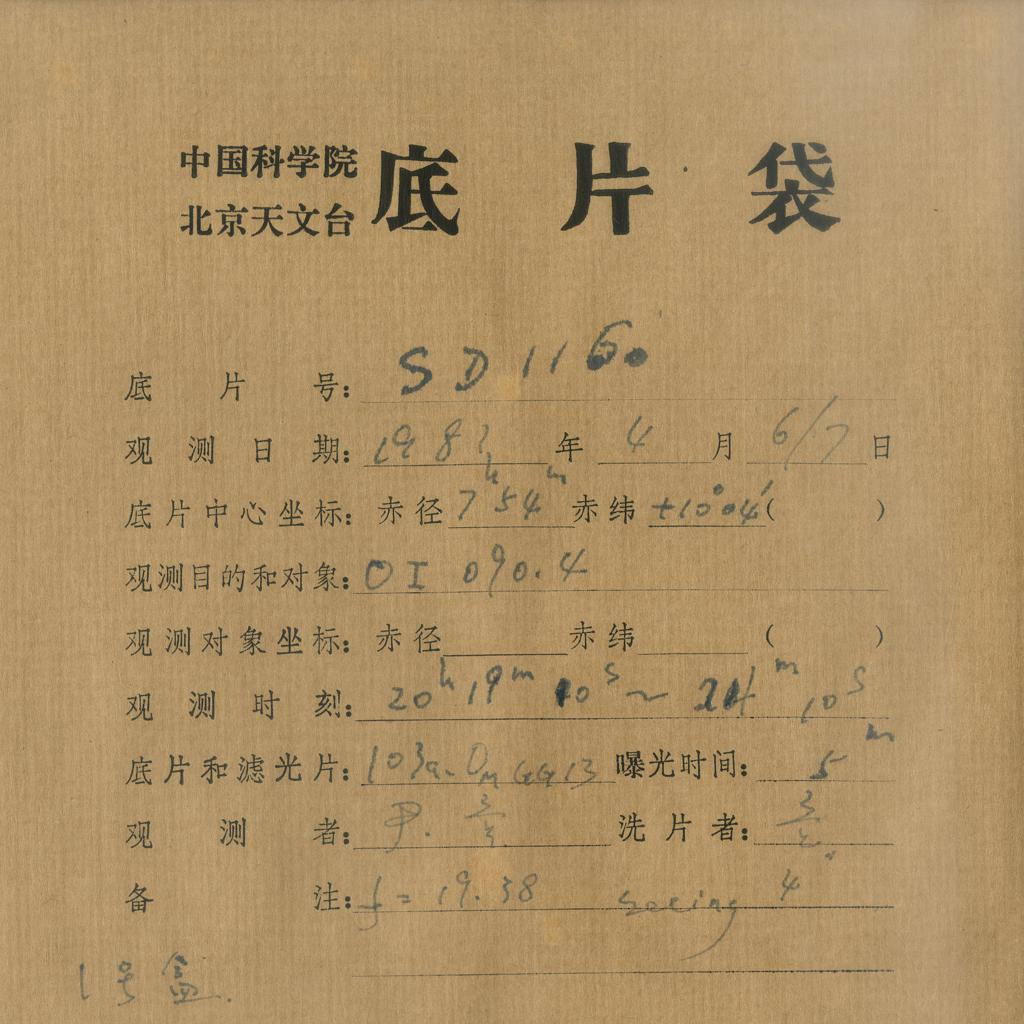 中国科学院
北京天文台
底片袋
底片号: SD1160
观测日期: 1983年 4月 6/7日
底片中心坐标: 赤径 7h54m 赤纬 +10°04′ ( )
观测目的和对象: OI 090.4
观测对象坐标: 赤径 赤纬 ( )
观测时刻: 20h 19m 10s ~ 24m 10s
底片和滤光片: 103a-O GG13 曝光时间: 5m
观测者: 尹. 洗片者:
备注: f = 19.38 seeing 4″
1号盒.